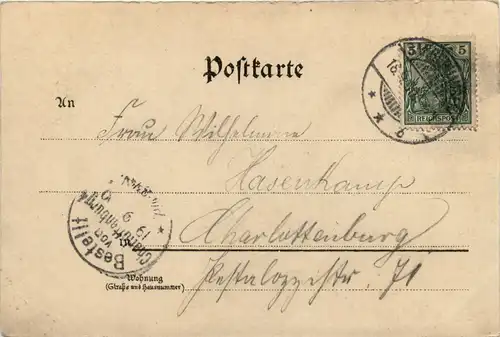 Postkarte
5 5
REICHSPOST
18
An
Frau Wilhelmine
Hasenkamp
Charlottenburg
Pestalozzistr. 71
Bestellt
vom
Charlottenburg
19 9
Wohnung
(Straße und Hausnummer)